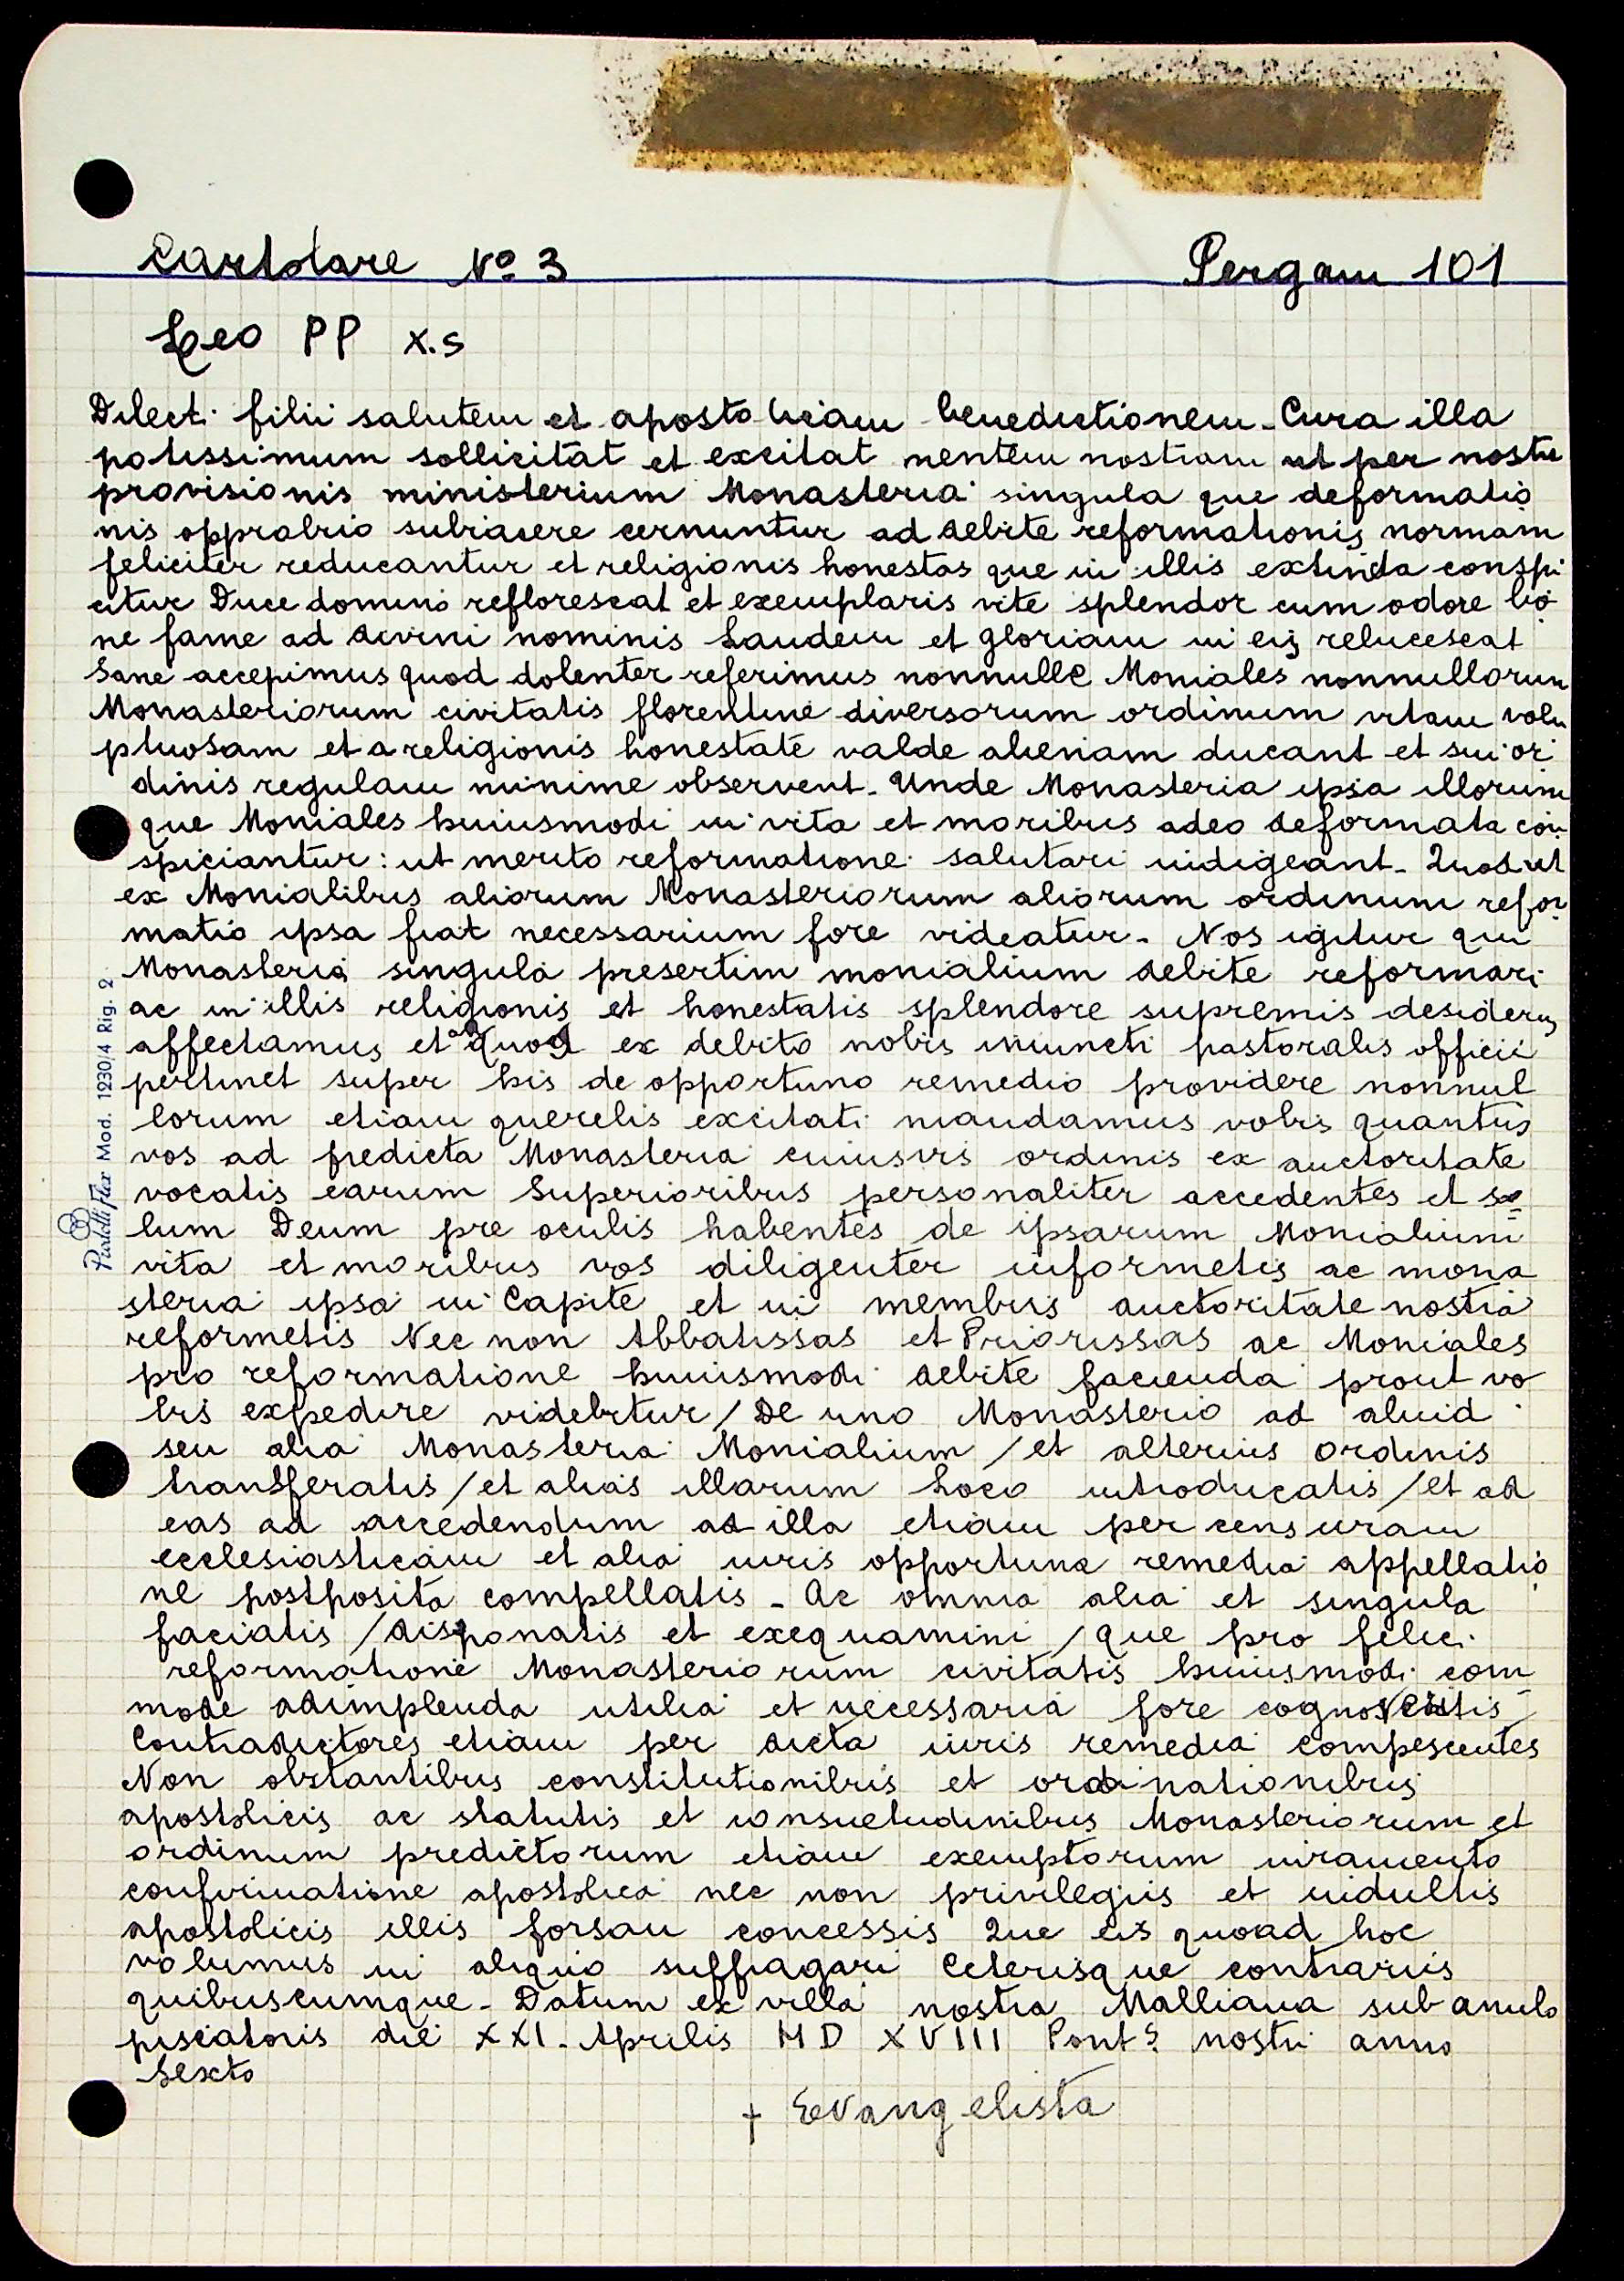 Cartolare Nº 3 Pergam 101
Leo PP X.s
Dilecti filii salutem et apostolicam benedictionem. Cura illa
potissimum sollicitat et excitat mentem nostram ut per nostre
provisionis ministerium Monasteria singula que deformatio
nis opprobrio subiacere cernuntur ad debite reformationis normam
feliciter reducantur et religionis honestas que in illis extincta conspi
citur Duce domino reflorescat et exemplaris vite splendor cum odore bo
ne fame ad divini nominis Laudem et gloriam in eis relucescat
Sane accepimus quod dolenter referimus nonnulle Moniales nonnullorum
Monasteriorum civitatis florentine diversorum ordinum vitam volu
ptuosam et a religionis honestate valde alienam ducant et sui or
dinis regulam minime observent. Unde Monasteria ipsa illorum
que Moniales huiusmodi in vita et moribus adeo deformata con
spiciantur: ut merito reformatione salutari indigeant. Quod ut
ex Monialibus aliorum Monasteriorum aliorum ordinum refor
matio ipsa fiat necessarium fore videatur. Nos igitur qui
Monasteria singula presertim monialium debite reformari
ac in illis religionis et honestatis splendore supremis desideriis
affectamus et ad quos ex debito nobis iniuncti pastoralis officii
pertinet super his de opportuno remedio providere nonnul
lorum etiam querelis excitati mandamus vobis quantus
vos ad predicta Monasteria cuiusvis ordinis ex auctoritate
vocatis earum Superioribus personaliter accedentes et so
lum Deum pre oculis habentes de ipsarum Monialium
vita et moribus vos diligenter informetis ac mona
steria ipsa in Capite et in membris auctoritate nostra
reformetis Nec non Abbatissas et Priorissas ac Moniales
pro reformatione huiusmodi debite facienda prout vo
bis expedire videbitur / De uno Monasterio ad aluid
seu alia Monasteria Monialium / et alterius ordinis
transferatis / et alias illarum Loco introducatis / et ad
eas ad accedendum ad illa etiam per censuram
ecclesiasticam et alia iuris opportuna remedia appellatio
ne postposita compellatis - Ac omnia alia et singula
faciatis / disponatis et exequamini / que pro felici
reformatione Monasteriorum civitatis huiusmodi com
mode adimplenda utilia et necessaria fore cognoveritis
Contradictores etiam per dicta iuris remedia compescentes
Non obstantibus constitutionibus et ordinationibus
apostolicis ac statutis et consuetudinibus Monasteriorum et
ordinum predictorum etiam exemptorum iuramento
confirmatione apostolica nec non privilegiis et indultis
apostolicis illis forsan concessis Que eis quoad hoc
volumus in aliquo suffragari Ceterisque contrariis
quibuscumque. Datum ex villa nostra Malliana sub anulo
piscatoris die XXI. Aprilis MD XVIII Pont.s nostri anno
Sexto
+ Evangelista
Pastelli Flex Mod. 1230/4 Rig. 2